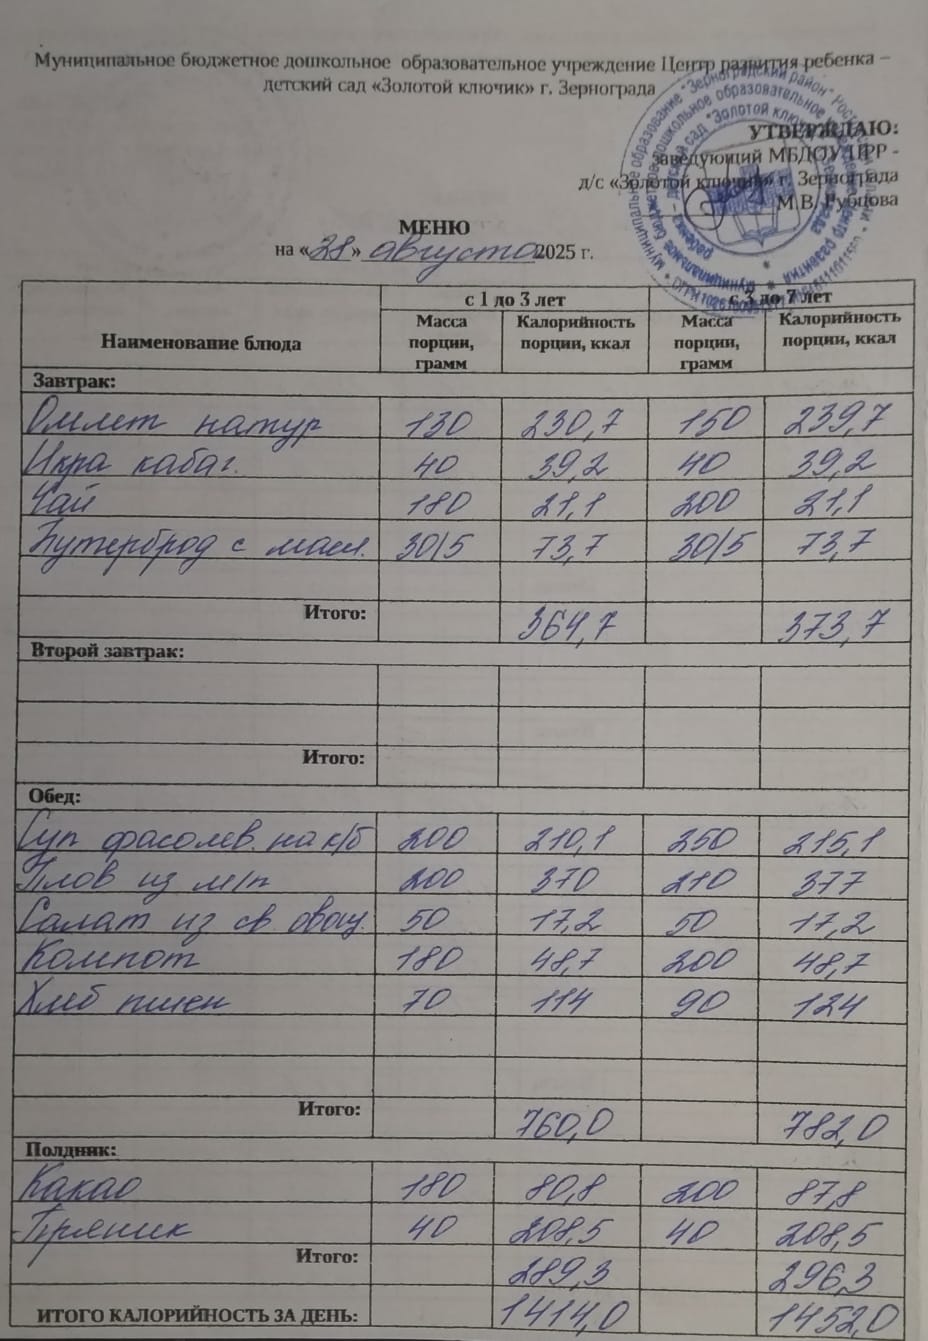 Муниципальное бюджетное дошкольное образовательное учреждение Центр развития ребенка –
детский сад «Золотой ключик» г. Зернограда
УТВЕРЖДАЮ:
заведующий МБДОУ ЦРР -
д/с «Золотой ключик» г. Зернограда
М.В. Рубцова
МЕНЮ
на «28» августа 2025 г.
с 1 до 3 лет с 3 до 7 лет
Наименование блюда Масса порции, грамм Калорийность порции, ккал Масса порции, грамм Калорийность порции, ккал
Завтрак:
Омлет натур 130 230,7 150 239,7
Икра кабаг. 40 39,2 40 39,2
Чай 180 21,1 200 21,1
Бутерброд с масл. 30/5 73,7 30/5 73,7
Итого: 364,7 373,7
Второй завтрак:
Итого:
Обед:
Суп фасолев. на к/б 200 210,1 250 215,1
Плов из м/п 200 370 210 377
Салат из св овощ. 50 17,2 50 17,2
Компот 180 48,7 200 48,7
Хлеб пшен 70 114 90 124
Итого: 760,0 782,0
Полдник:
Какао 180 80,8 200 87,8
Пряник 40 208,5 40 208,5
Итого: 289,3 296,3
ИТОГО КАЛОРИЙНОСТЬ ЗА ДЕНЬ: 1414,0 1452,0